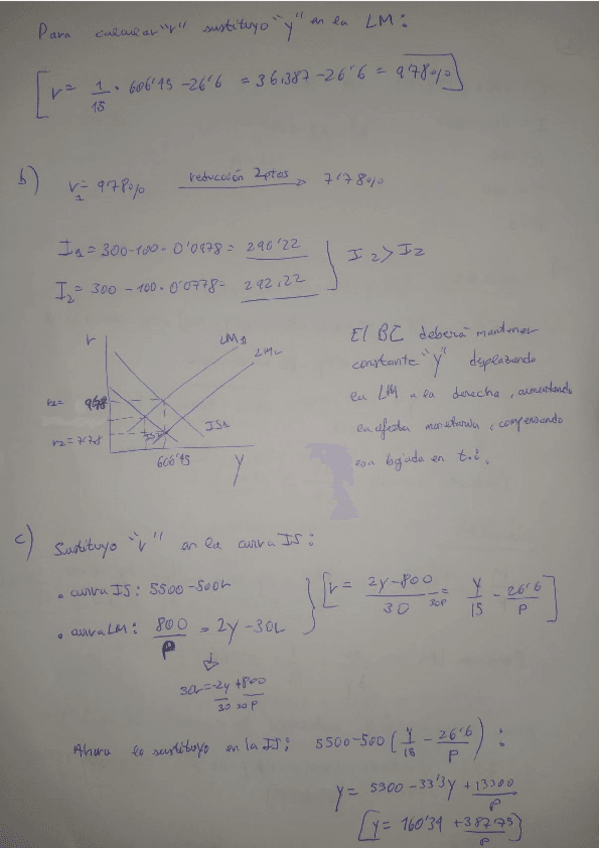 Para calcular "r" sustituyo "y" en la LM:
[r = 1/15 · 606'45 - 26'6 = 36.387 - 26'6 = 9'78%]
b) r1 = 9'78% reducción 2ptos → 7'78%
I1 = 300 - 100 · 0'0978 = 290'22
I2 = 300 - 100 · 0'0778 = 292,22
I2 > I2
r
LM1
LM2
r1= 9'78
r2= 7'78
IS1
606'45
Y
El BC deberá mantener
constante "y" desplazando
la LM a la derecha, aumentando
la oferta monetaria, compensando
con bajada en t.i.
c) Sustituyo "r" en la curva IS:
• curva IS: 5500 - 500r
• curva LM: 800/P = 2y - 30r
[r = 2y-800/30 30P = Y/15 - 26'6/P]
↓
30r = -2y/30 + 800/30P
Ahora lo sustituyo en la IS: 5500 - 500 (Y/15 - 26'6/P) :
y = 5500 - 33'3y + 13300/P
[y = 160'34 + 387'75/P]